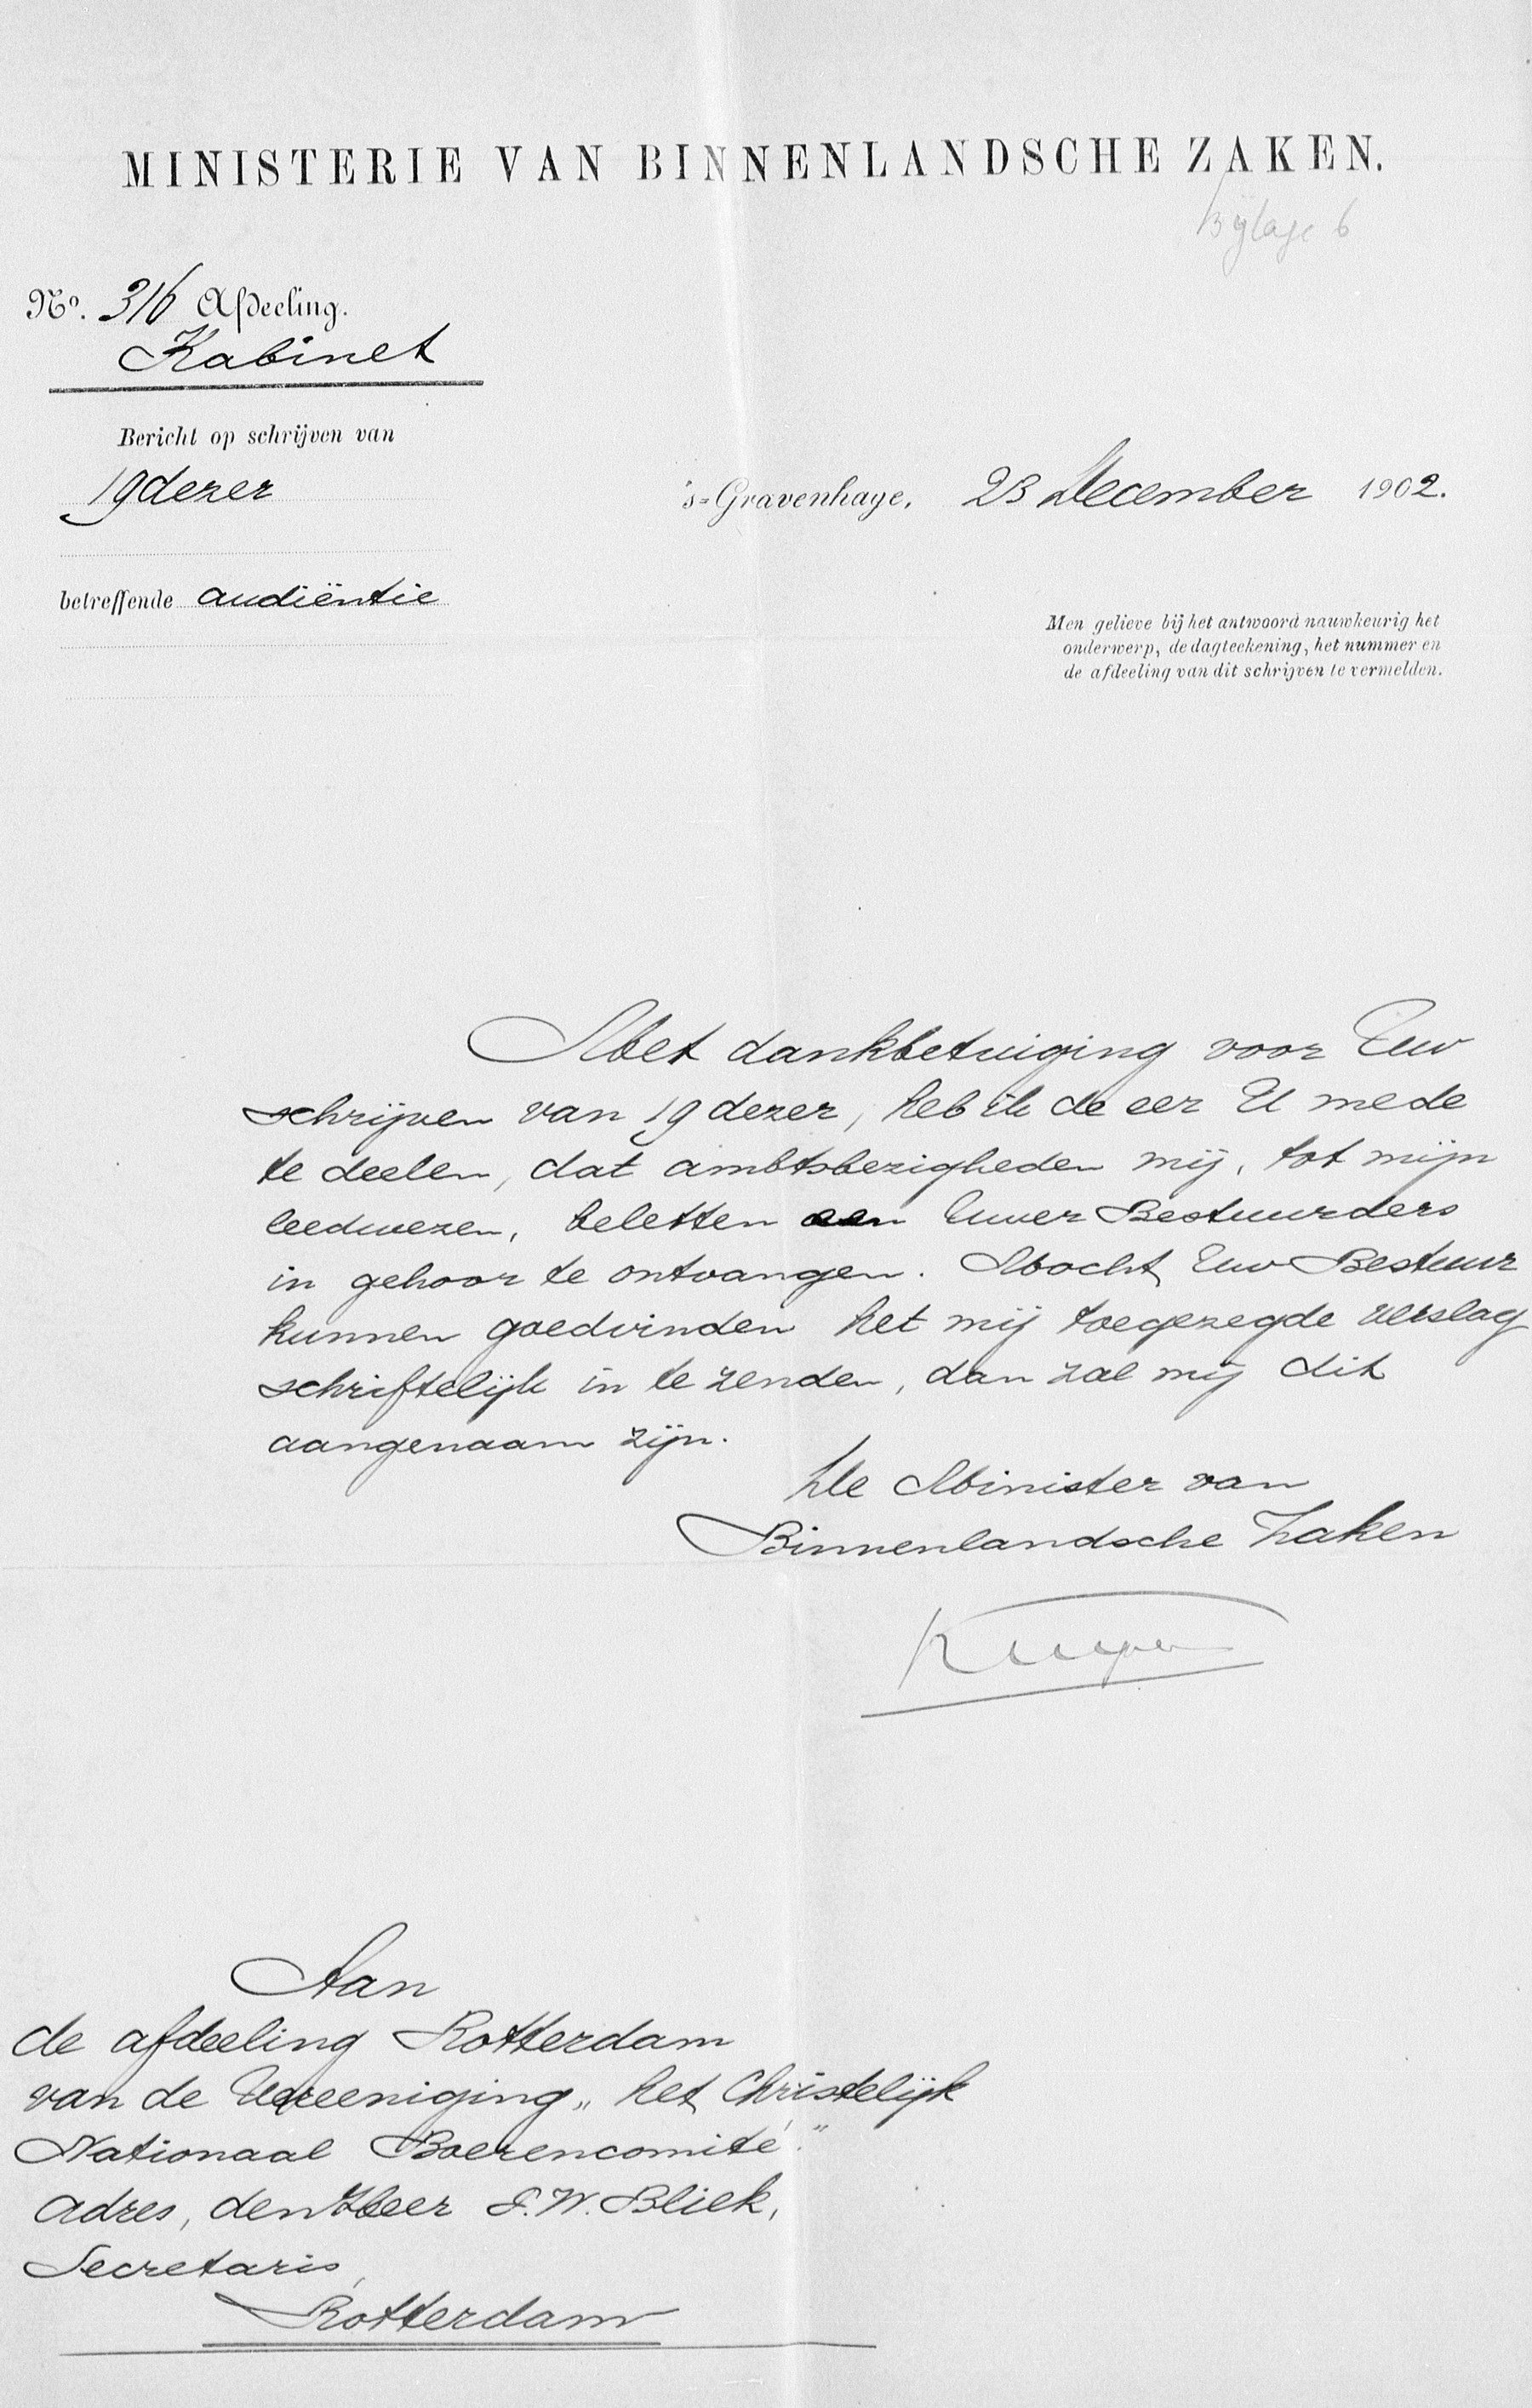 MINISTERIE VAN BINNENLANDSCHE ZAKEN.
Bijlage 6
No. 316 Afdeeling.
Kabinet
Bericht op schrijven van
19 dezer
's-Gravenhage, 23 December 1902.
betreffende audiëntie
Men gelieve bij het antwoord nauwkeurig het
onderwerp, de dagteekening, het nummer en
de afdeeling van dit schrijven te vermelden.
Met dankbetuiging voor Uw
schrijven van 19 dezer, heb ik de eer U mede
te deelen, dat ambtsbezigheden mij, tot mijn
leedwezen, beletten een Uwer Bestuurders
in gehoor te ontvangen. Mocht Uw Bestuur
kunnen goedvinden het mij toegezegde verslag
schriftelijk in te zenden, dan zal mij dit
aangenaam zijn.
De Minister van
Binnenlandsche Zaken
Kuyper
Aan
de afdeeling Rotterdam
van de Vereeniging „het Christelijk
Nationaal Boerencomité."
adres, den Heer J. W. Bliek,
Secretaris,
Rotterdam